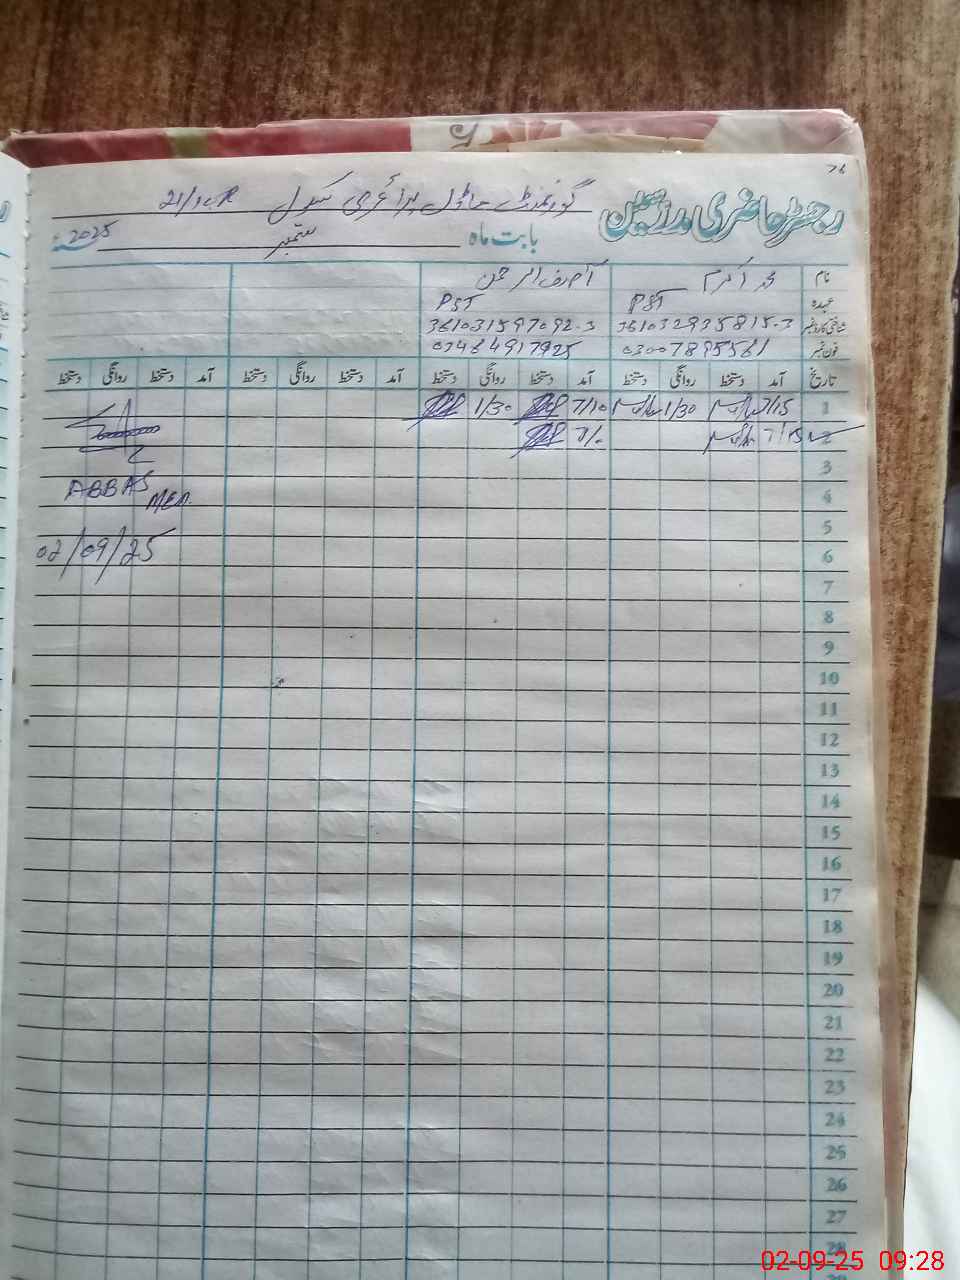 76
رجسٹر حاضری مدرسین
گورنمنٹ ماڈل پرائمری سکول 21/1-R
بابت ماہ ستمبر 2025ء
نام محمد اکرم آصف الرحمن
عہدہ PST PST
شناختی کارڈ نمبر 361032935815-3 361031597092-3
فون نمبر 03007895561 03464917925
تاریخ آمد دستخط روانگی دستخط آمد دستخط روانگی دستخط آمد دستخط روانگی دستخط آمد دستخط روانگی دستخط
1 7/15 1/30 7/10 1/30
2 7/15
3
ABBAS
4
MEA
5
02/09/25
6
7
8
9
10
11
12
13
14
15
16
17
18
19
20
21
22
23
24
25
26
27
28
02-09-25 09:28